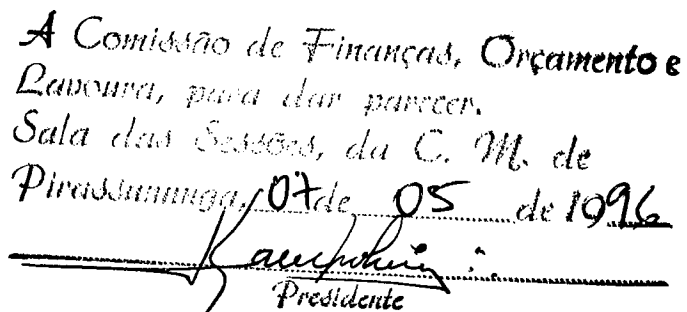 A Comissão de Finanças, Orçamento e
Lavoura, para dar parecer.
Sala das Sessões, da C. M. de
Pirassununga, 07 de 05 de 1996
Presidente